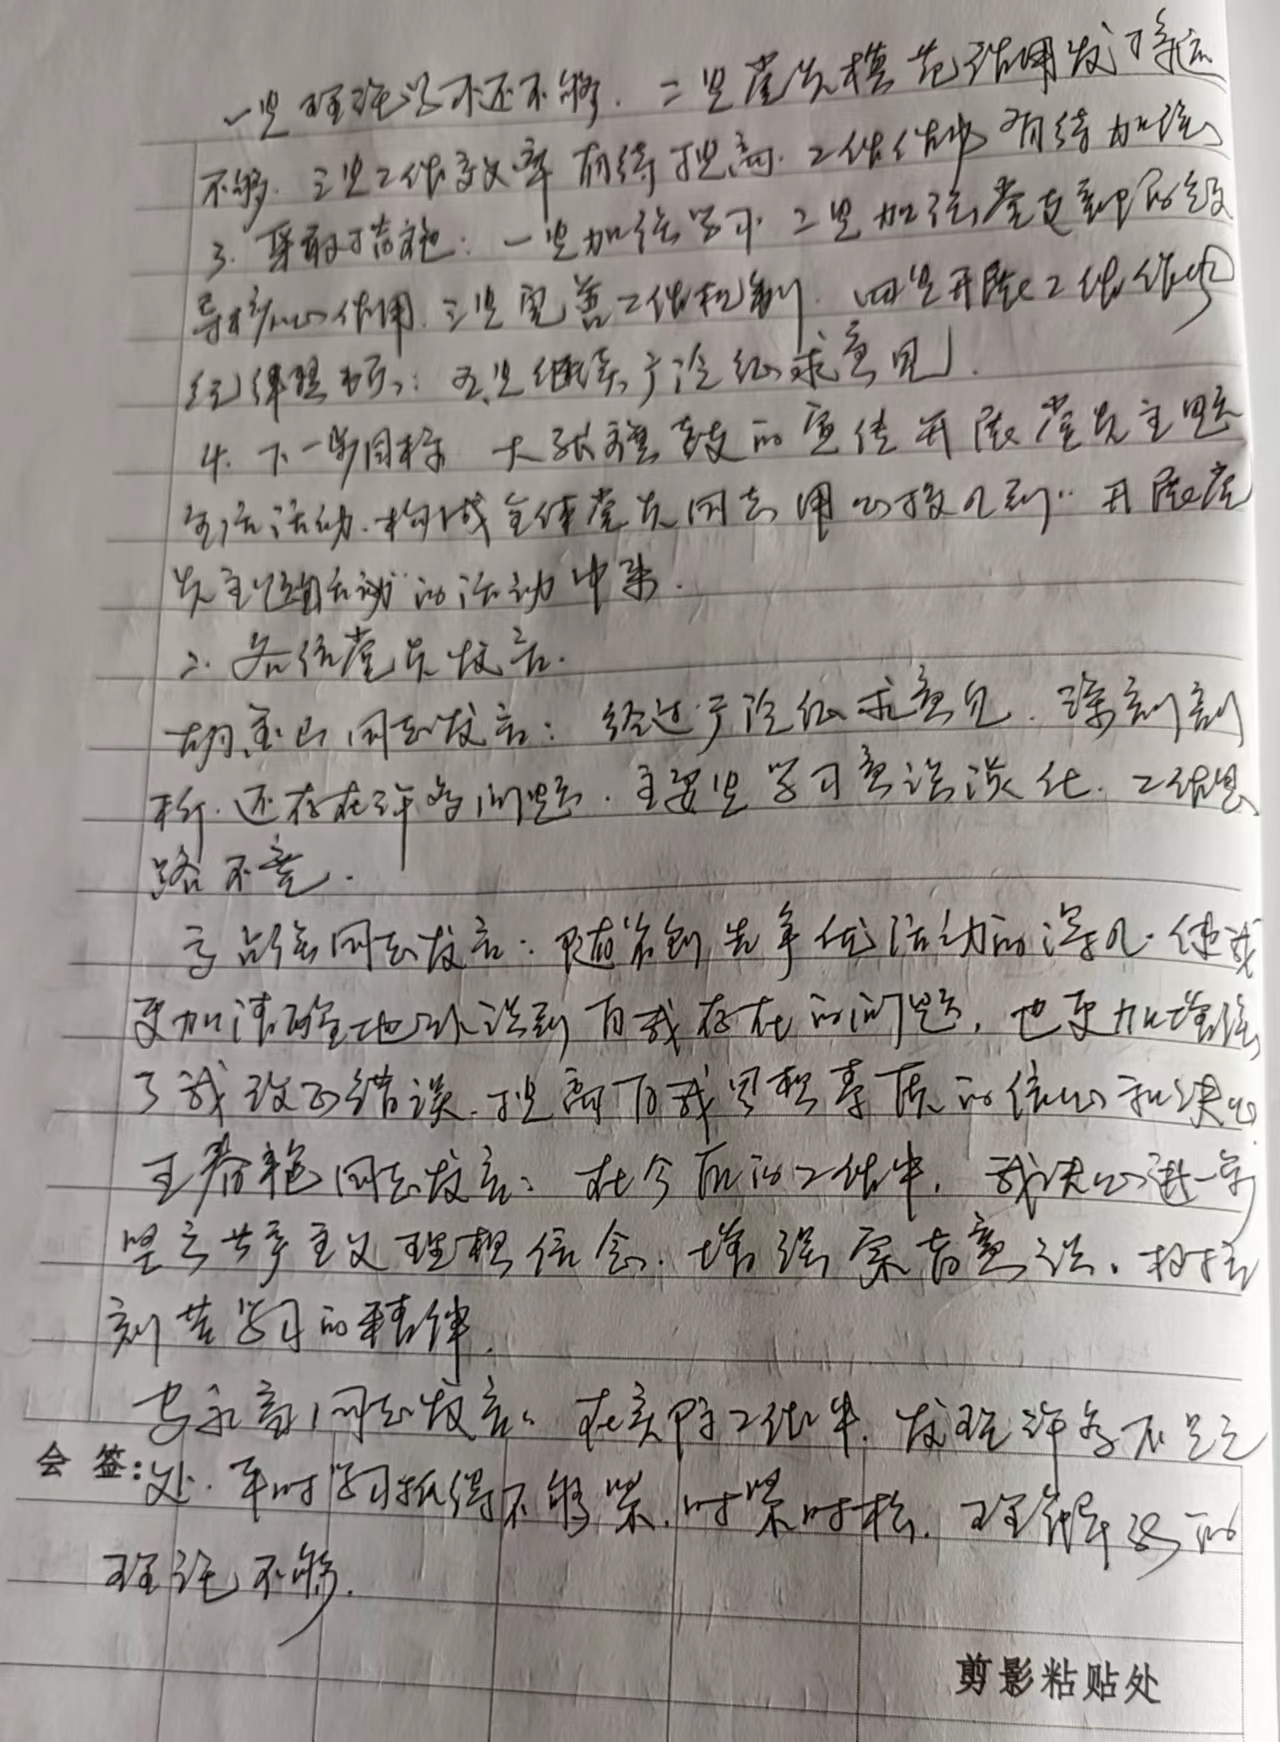 一是理论学习还不够.二是党员模范作用发挥还
不够.三是工作效率有待提高.工作作风有待加强
3.采取措施:一是加强学习.二是加强党支部的领
导核心作用.三是完善工作机制.四是开展工作作风
纪律整顿;五是继续广泛征求意见.
4.下一步目标 大张旗鼓的宣传开展党员主题
生活活动.构成全体党员同志用心投入到"开展党
员主题活动"的活动中来.
2.各位党员发言.
胡玉山同志发言:经过广泛征求意见.深刻剖
析.还存在许多问题.主要是学习意识淡化.工作思
路不宽.
同志发言:随着创先争优活动的深入.使我
更加清醒地认识到自我存在的问题,也更加增强
了我改正错误.提高自我思想素质的信心和决心
王春艳同志发言:在今后的工作中,我决心进一步
坚定共产主义理想信念.增强宗旨意识.树立
刻苦学习的精神.
安永高同志发言:在实际工作中.发现许多不足之
会签:处.平时学习抓得不够紧.时紧时松.理解学习的
理论不够.
剪影粘贴处